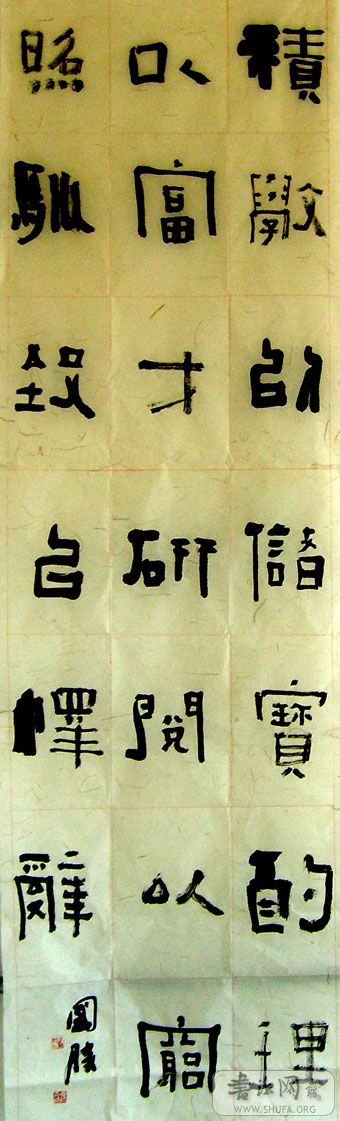 積斆以儲寶酌理
以富才研閱以窮
照馴致以懌辭
國
书法网
WWW.SHUFA.ORG